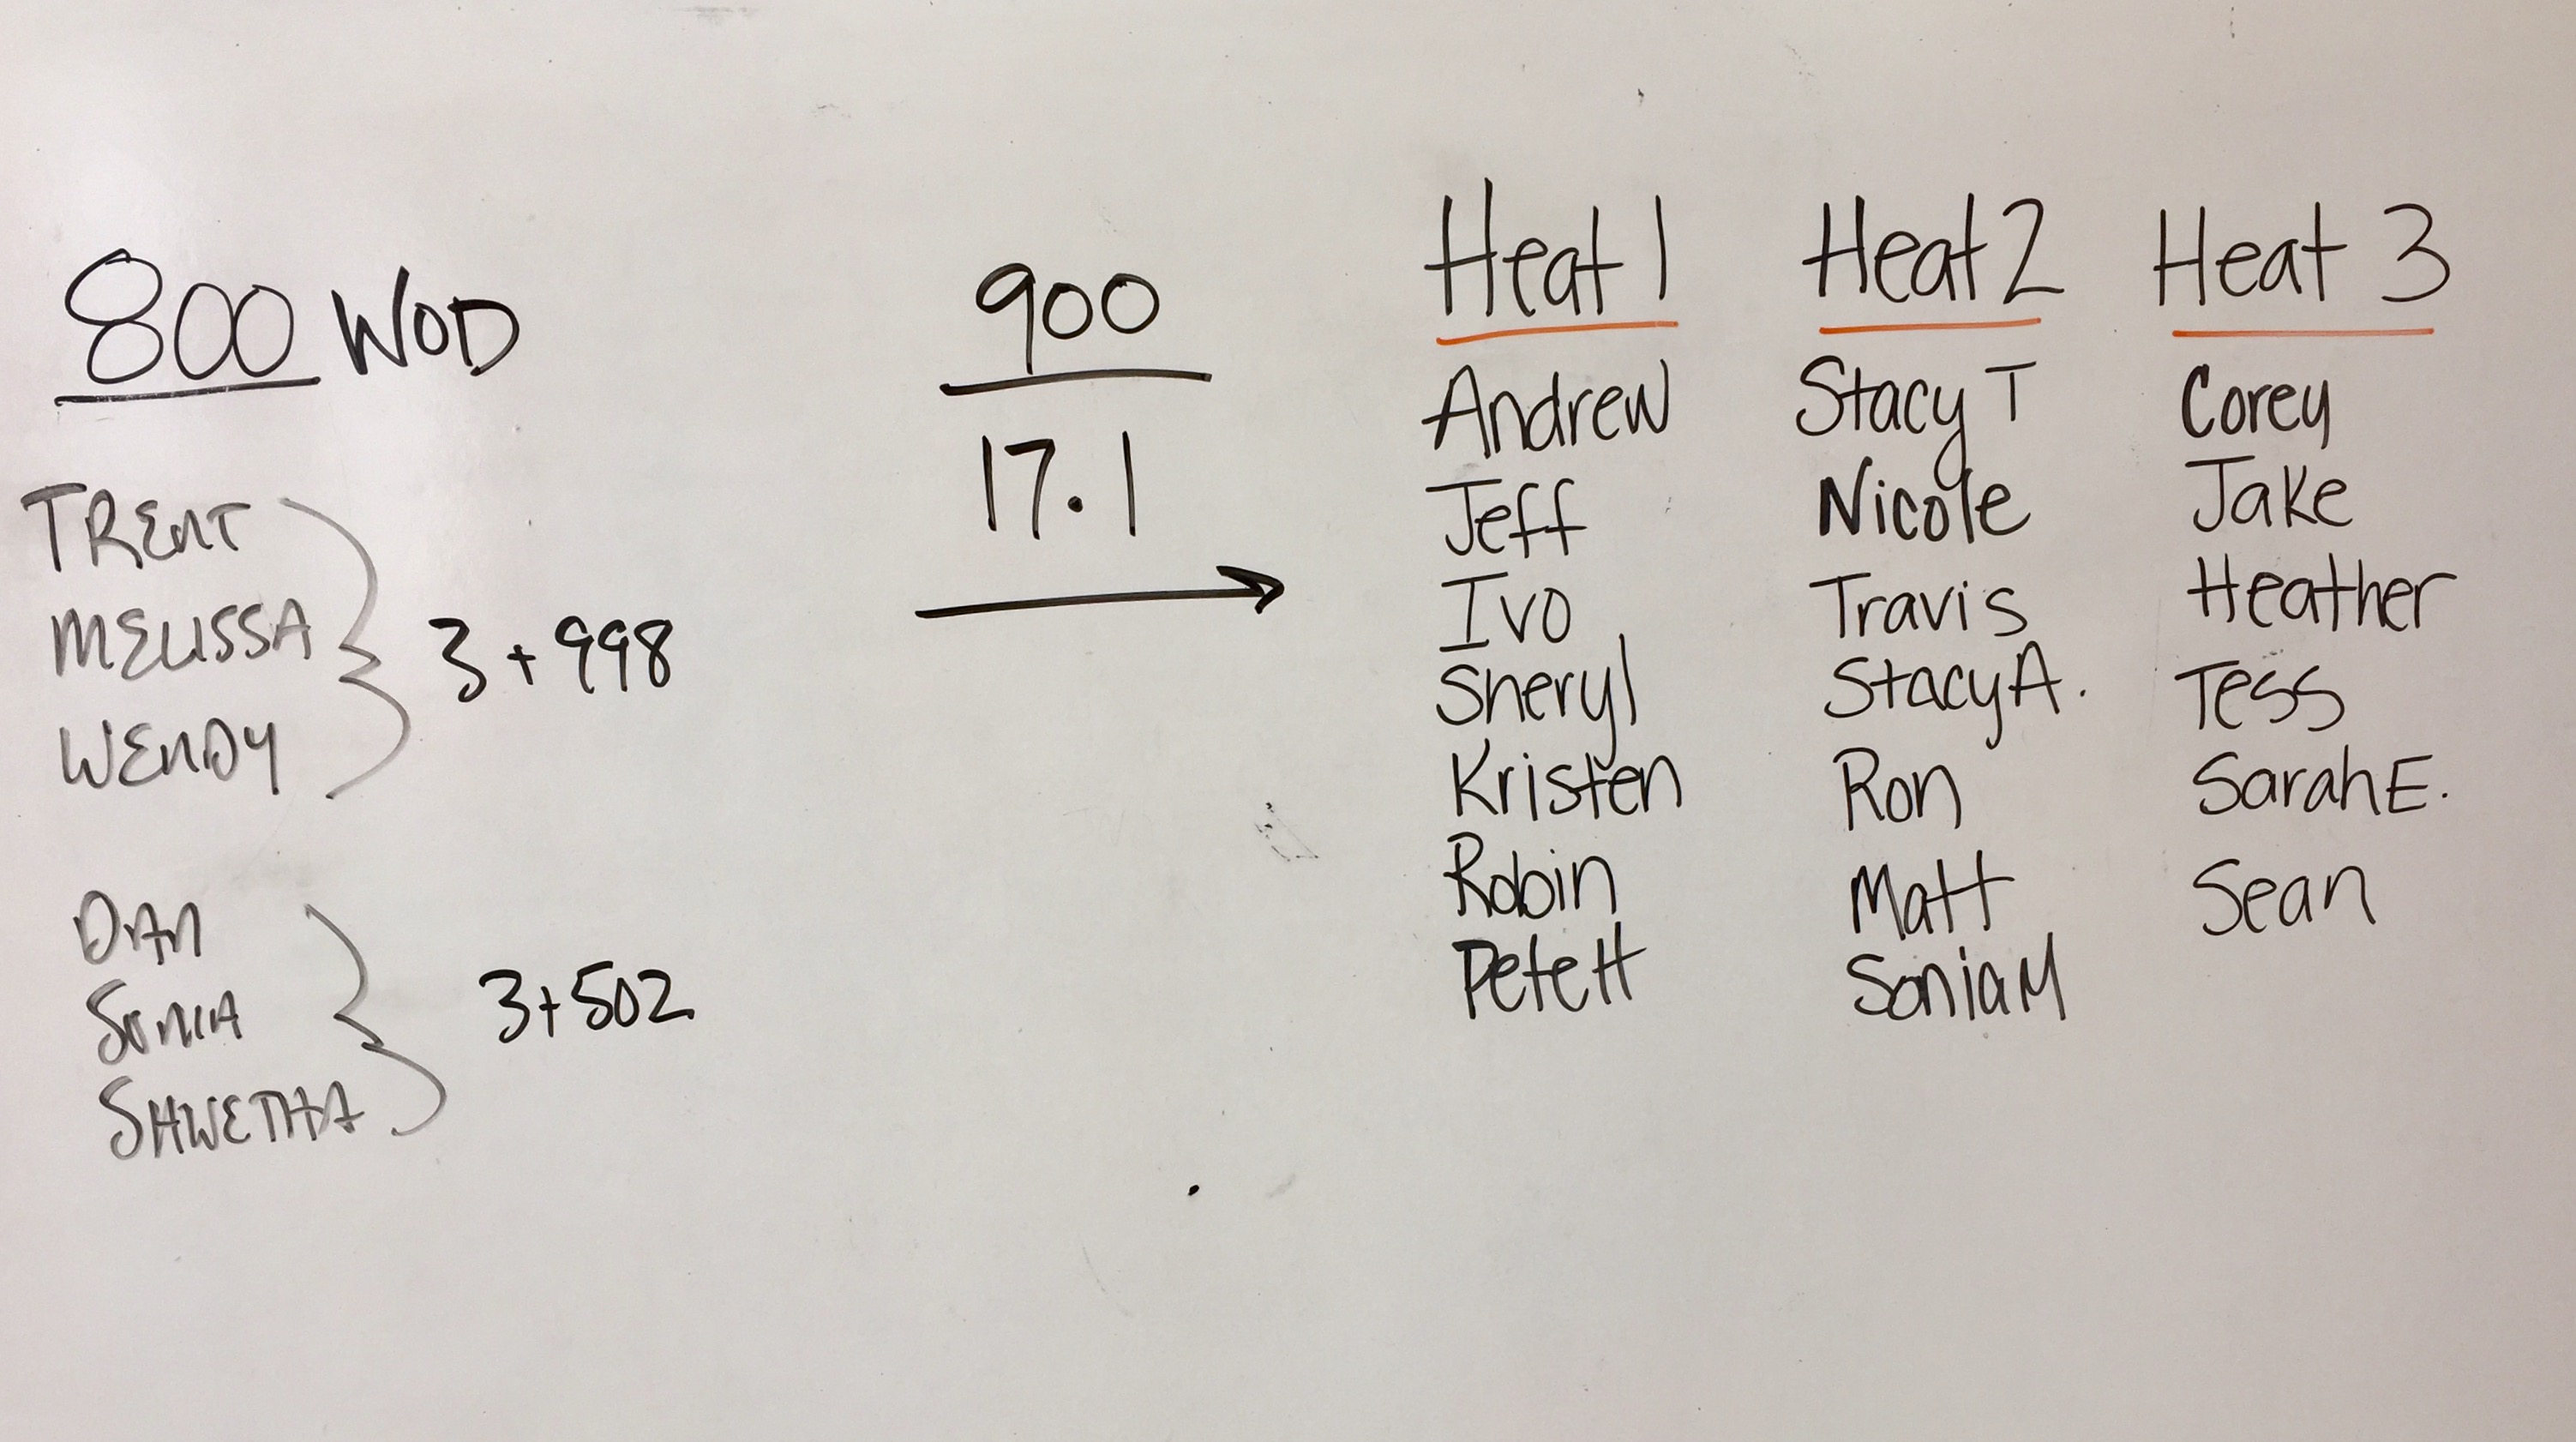 800 WOD
TRENT
MELISSA
WENDY
3 + 998
DAN
SONIA
SHWETHA
3+502
900
17.1
Heat 1
Andrew
Jeff
Ivo
Sheryl
Kristen
Robin
Pete H
Heat 2
Stacy T
Nicole
Travis
Stacy A.
Ron
Matt
Sonia M
Heat 3
Corey
Jake
Heather
Tess
Sarah E.
Sean